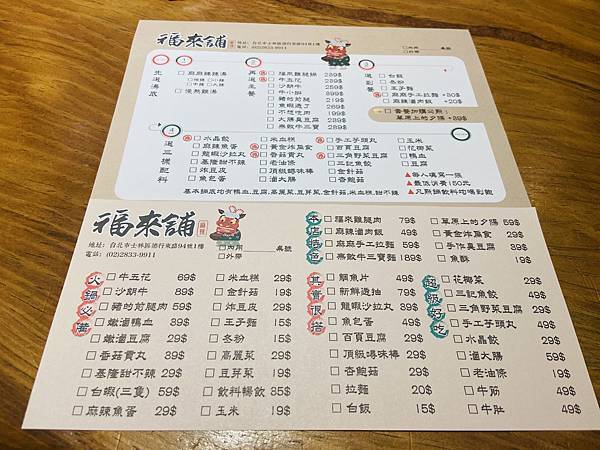 福來舖
地址：台北市士林區德行東路94號1樓
電話：(02)2833-9911
□內用
□外帶
桌號
先選湯底
□ 麻麻辣辣湯
□微辣 □小辣
□中辣 □大辣
□ 慢熬雞湯
再選主餐
□ 福來雞腿鍋 239$
□ 牛五花 239$
□ 沙朗牛 239$
□ 牛小排 299$
□ 豬的前腿 219$
□ 鯛魚遊了 269$
□ 不想吃肉 199$
□ 大腸臭豆腐 239$
□ 燕飲牛三寶 289$
選副餐
□ 白飯
□ 冬粉
□ 王子麵
□ 麻麻手工拉麵 +50$
□ 麻辣滷肉飯 +30$
□ 套餐加購公煎：
草原上的夕陽 +29$
選三樣配料
□ 水晶餃
□ 麻辣魚蛋
□ 龍蝦沙拉丸
□ 基隆甜不辣
□ 炸豆皮
□ 魚包蛋
□ 米血糕
□ 黃金炸扁食
□ 香菇貢丸
□ 老油條
□ 頂級蟳味棒
□ 滷大腸
□ 手工芋頭丸
□ 百頁豆腐
□ 三角野菜豆腐
□ 三記魚餃
□ 金針菇
□ 杏鮑菇
□ 玉米
□ 花椰菜
□ 鴨血
□ 豆腐
▲每人填寫一張
▲最低消費150元
▲凡點鍋飲料均喝到飽
基本鍋底均有鴨血,豆腐,高麗菜,豆芽菜,金針菇,米血糕,甜不辣
福來舖
麻辣
地址：台北市士林區德行東路94號1樓
電話：(02)2833-9911
□內用
□外帶
桌號
本店特色
□ 福來雞腿肉 79$
□ 麻辣滷肉飯 49$
□ 麻麻手工拉麵 59$
□ 燕飲牛三寶麵 189$
□ 草原上の夕陽 59$
□ 黃金炸扁食 29$
□ 手作臭豆腐 39$
□ 魚酥 19$
火鍋必備
□ 牛五花 69$
□ 沙朗牛 89$
□ 豬的前腿肉 59$
□ 嫩滷鴨血 39$
□ 嫩滷豆腐 29$
□ 香菇貢丸 39$
□ 基隆甜不辣 29$
□ 白蝦(三隻) 59$
□ 麻辣魚蛋 29$
□ 米血糕 29$
□ 金針菇 19$
□ 炸豆皮 29$
□ 王子麵 15$
□ 冬粉 15$
□ 高麗菜 29$
□ 豆芽菜 19$
□ 飲料暢飲 35$
□ 玉米 19$
其實很搭
□ 鯛魚片 49$
□ 新鮮透抽 79$
□ 龍蝦沙拉丸 39$
□ 魚包蛋 49$
□ 百頁豆腐 29$
□ 頂級蟳味棒 29$
□ 杏鮑菇 29$
□ 拉麵 20$
□ 白飯 15$
超級好吃
□ 花椰菜 29$
□ 三記魚餃 49$
□ 三角野菜豆腐 29$
□ 手工芋頭丸 49$
□ 水晶餃 29$
□ 滷大腸 59$
□ 老油條 19$
□ 牛筋 49$
□ 牛肚 49$